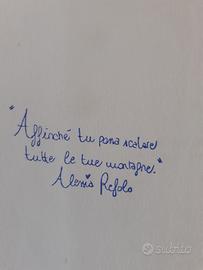 "Affinché tu possa scalare
tutte le tue montagne."
Alessio Refolo
subito